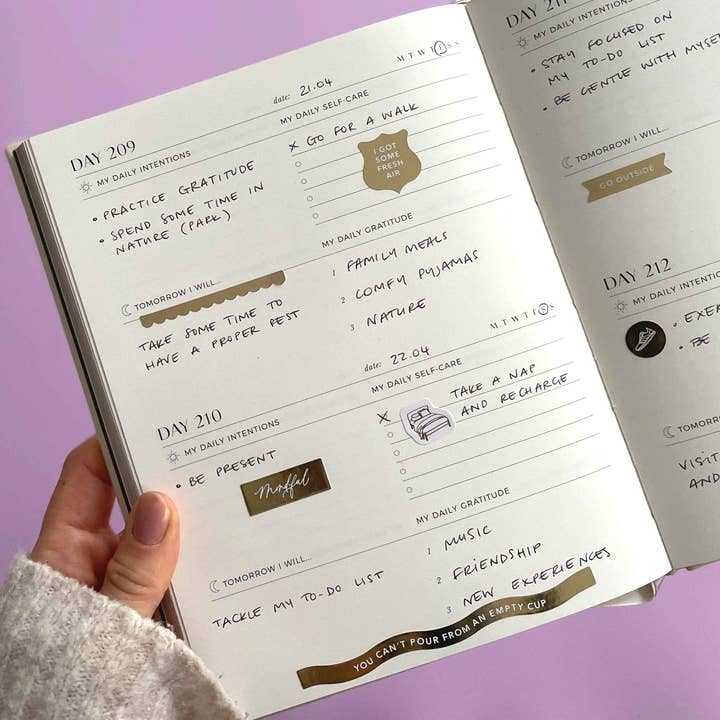 DAY 209
date: 21.04
M T W T F S S
MY DAILY INTENTIONS
• PRACTICE GRATITUDE
• SPEND SOME TIME IN
NATURE (PARK)
MY DAILY SELF-CARE
X GO FOR A WALK
I GOT
SOME
FRESH
AIR
TOMORROW I WILL...
TAKE SOME TIME TO
HAVE A PROPER REST
MY DAILY GRATITUDE
1 FAMILY MEALS
2 COMFY PYJAMAS
3 NATURE
DAY 210
date: 22.04
M T W T F S S
MY DAILY INTENTIONS
• BE PRESENT
Mindful
MY DAILY SELF-CARE
X TAKE A NAP
AND RECHARGE
TOMORROW I WILL...
TACKLE MY TO-DO LIST
MY DAILY GRATITUDE
1 MUSIC
2 FRIENDSHIP
3 NEW EXPERIENCES
YOU CAN'T POUR FROM AN EMPTY CUP
DAY 211
MY DAILY INTENTIONS
• STAY FOCUSED ON
MY TO-DO LIST
• BE GENTLE WITH MYSE
TOMORROW I WILL...
GO OUTSIDE
DAY 212
MY DAILY INTENTIO
• EXE
• BE
TOMORRO
VISIT
AND